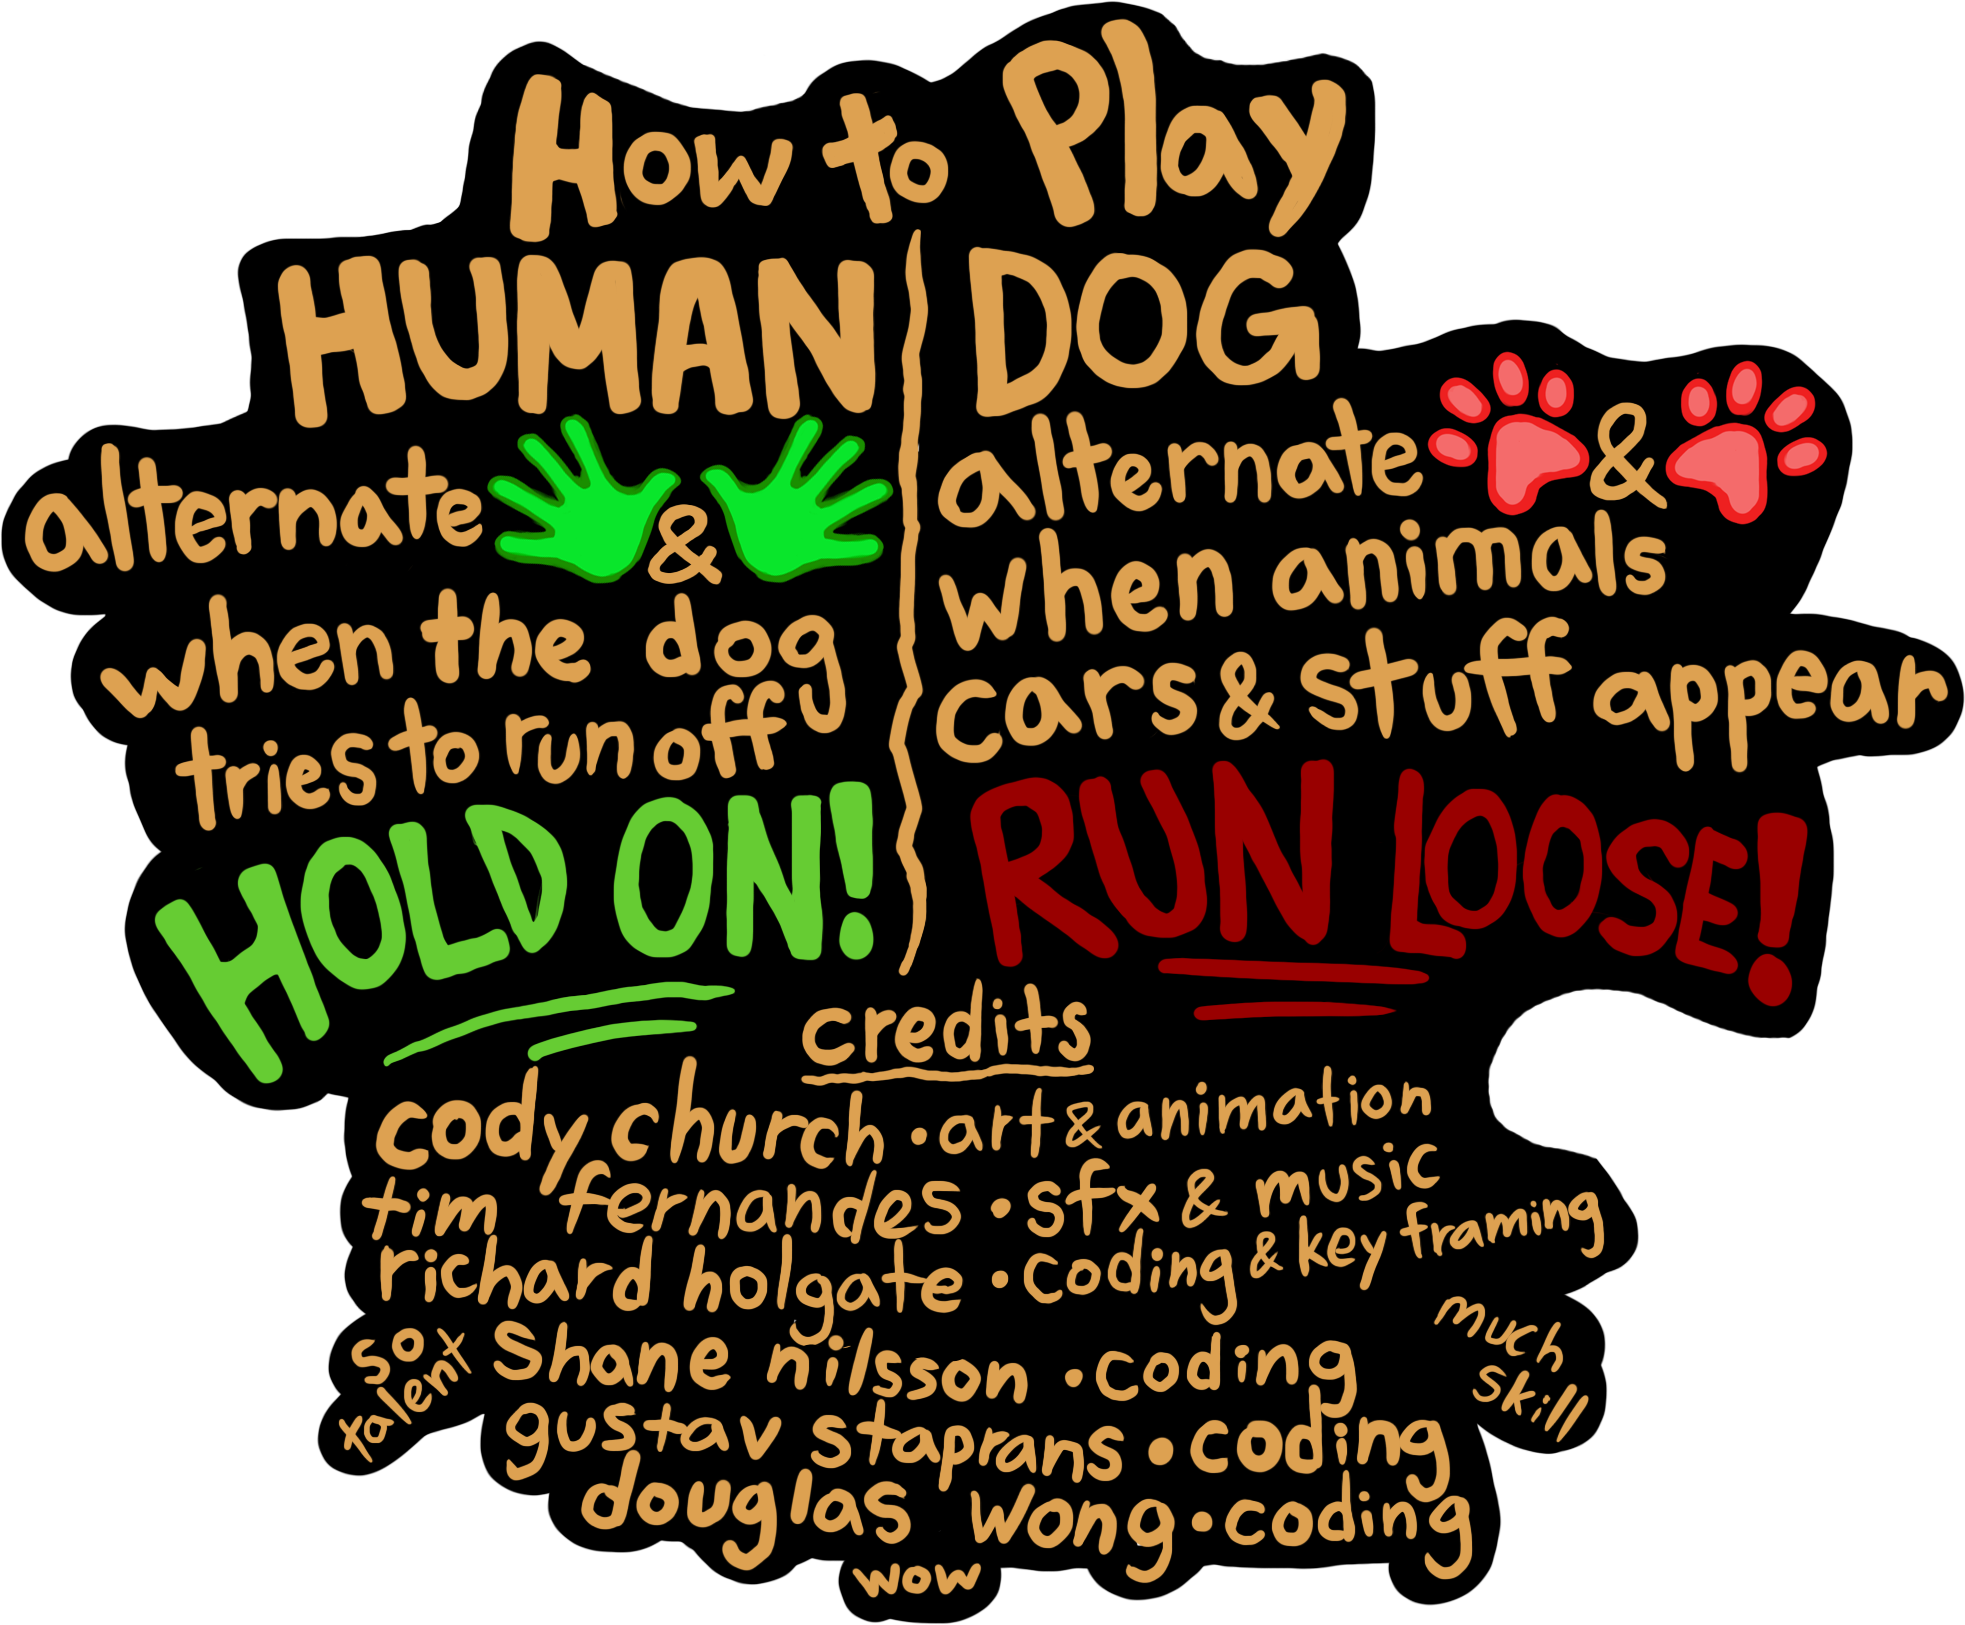 How to Play
HUMAN
alternate &
when the dog
tries to run off
HOLD ON!
DOG
alternate &
when animals
cars & stuff appear
RUN LOOSE!
credits
cody church · art & animation
tim fernandes · sfx & music
richard holgate · coding & key framing
so
talent
shane nilsson · coding
much
skill
gustav staprans · coding
douglas wong · coding
wow